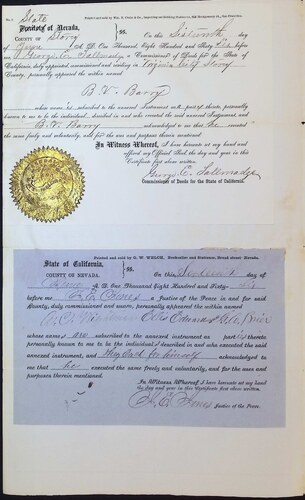 State
of Nevada.
COUNTY OF Storey ss.
On this Sixteenth day
of A. D. One Thousand Eight Hundred and Sixty
before me, George E. Tallmadge a Commissioner of Deeds for the State of
California, duly appointed commissioned and residing in Virginia City Storey
County, personally appeared the within named
B. V. Barry
whose name is subscribed to the annexed Instrument as part thereto, personally
known to me to be the individual, described in and who executed the said annexed Instrument, and
B. V. Barry acknowledged to me that he executed
the same freely and voluntarily, and for the uses and purposes therein mentioned.
In Witness Whereof, I have hereunto set my hand and
affixed my Official Seal, the day and year in this
Certificate first above written.
George E. Tallmadge
Commissioner of Deeds for the State of California.
Printed and sold by G. W. WELCH, Bookseller and Stationer, Broad street Nevada.
State of California,
COUNTY OF NEVADA. ss.
On this Seventeenth day of
A. D. One Thousand Eight Hundred and Sixty-
before me a Justice of the Peace in and for said
County, duly commissioned and sworn, personally appeared the within named
Ellis Edward
whose names are subscribed to the annexed instrument as part thereto
personally known to me to be the individual described in and who executed the said
annexed instrument, and they Each for himself acknowledged to
me that he executed the same freely and voluntarily, and for the uses and
purposes therein mentioned.
In Witness Whereof I have hereunto set my hand
the day and year in this Certificate first above written.
Justice of the Peace.